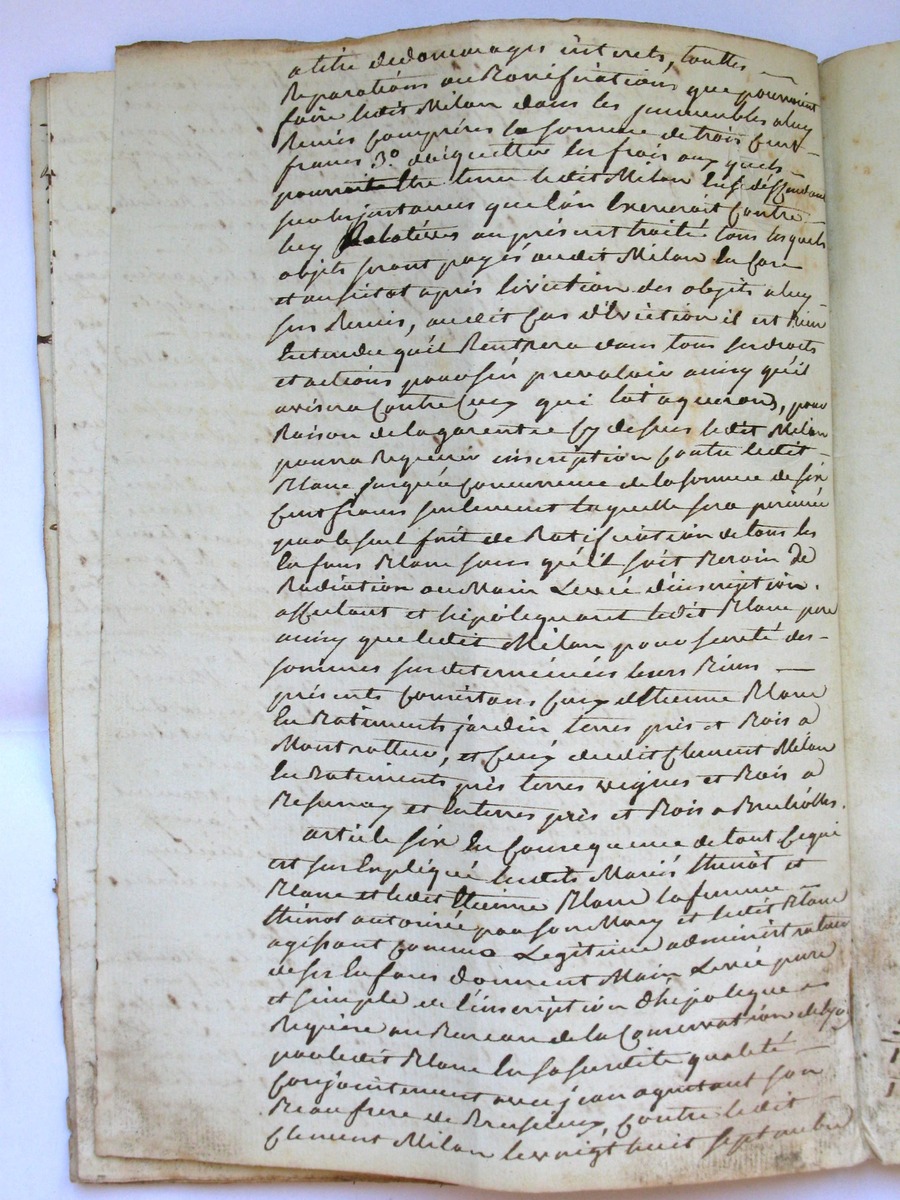 a titre de dommages interets, touttes
Reparations ou Bonifications que pourroient
faire ledit Milan dans les immeubles a luy
Remis compris la somme de trois cent
francs 3º. d'aiquitter les frais aux quels
pourrait Etre tenu ledit Milan En se deffendant
sur les instances que l'on Exerceroit contre
luy Relatives au présent traité tous lesquels
objets seront payés audit Milan En cas
et aussitot après l'eviction des objets a luy
sus Remis, audit cas d'Eviction il est Bien
Entendu qu'il Rentrera dans tous ses droits
et actions pour s'en prevaloir ainsy qu'il
avisera contre ceux qui l'ataqueront, pour
Raison de la garentie cy dessus ledit Milan
pourra Requerir inscription contre ledit
Blanc jusqu'a concurrence de la somme de six
Cent francs seulement laquelle sera perimée
par le seul fait de Ratification de tous les
Enfans Blanc sans qu'il soit Besoin de
Radiation ou Main Levée d'inscription.
affectant et hipotequant ledit Blanc pere
ainsy que ledit Milan pour sureté des
sommes sus determinées leurs Biens
présents consistans ceux d'Etienne Blanc
En Batiments jardin terres près et Bois a
Montrottier, et ceux dudit Clement Milan
En Batiments près terres vignes et Bois a
Bessenay et En terres près et Bois a Brullolles.
article six En consequence de tout ce qui
est sus Expliqué lesdits Mariés thinot et
Blanc et ledit Etienne Blanc la femme
thinot autorisée par son Mary et ledit Blanc
agissant comme Legitime administrateur
de ses Enfans donnent Main Levée pure
et simple de l'inscription d'hipoteque
Requise au Bureau de la Conservation de Lyon
par ledit Blanc En sa susdite qualité
Conjointement avec jean son
Beau frere de contre ledit
Clement Milan le vingt huit septembre